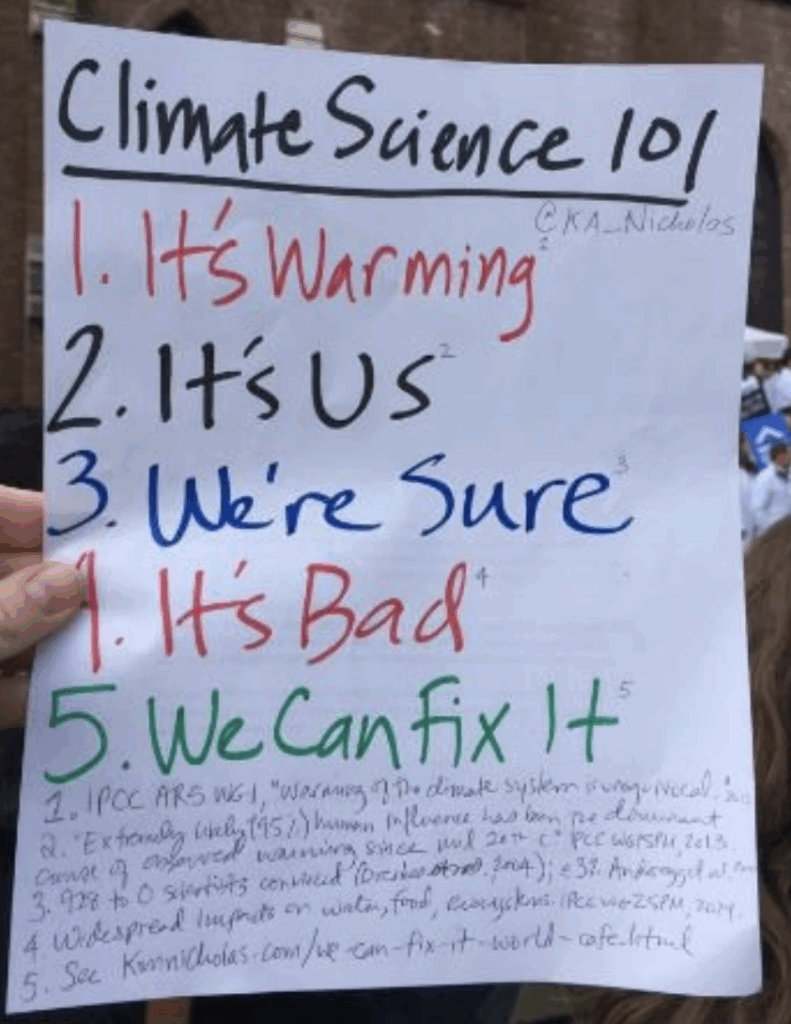 Climate Science 101
@KA_Nicholas
1. It's Warming 2
2. It's Us 2
3. We're Sure 3
4. It's Bad 4
5. We Can Fix It 5
1. IPCC AR5 WG1, "Warming of the climate system is unequivocal."
2. "Extremely likely (95%) human influence has been the dominant
cause of observed warming since mid 20th C" IPCC WG1SPM, 2013.
3. 928 to 0 scientists convinced (Oreskes 2004); ±3%. Anderegg et al,
4. Widespread impacts on water, food, ecosystems. IPCC WG2SPM, 2014.
5. See Kimnicholas.com/we-can-fix-it-world-cafe.html